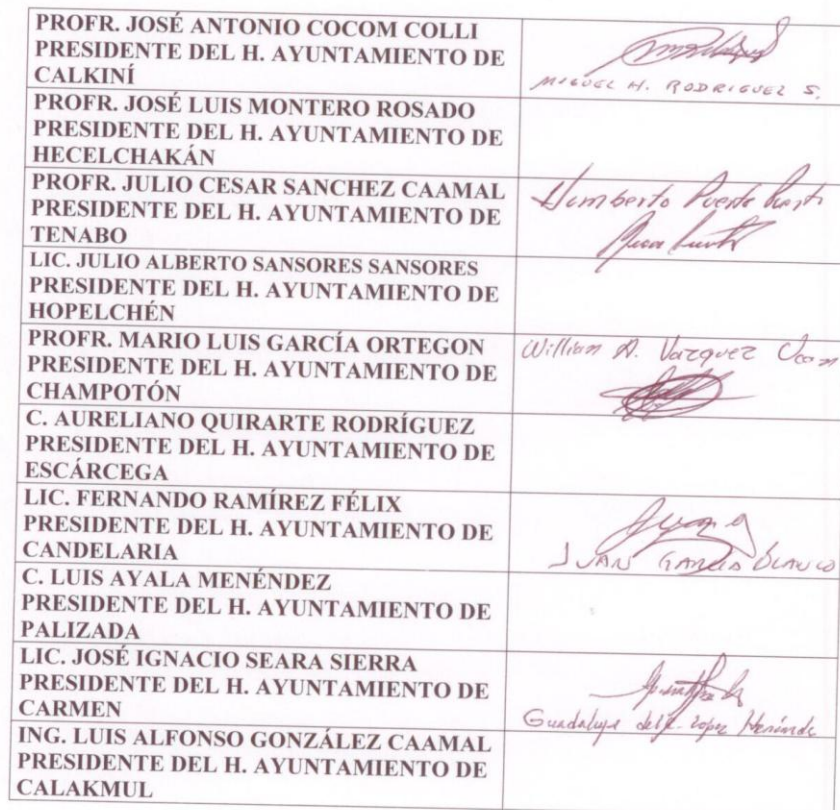 PROFR. JOSÉ ANTONIO COCOM COLLI
PRESIDENTE DEL H. AYUNTAMIENTO DE
CALKINÍ
MIGUEL H. RODRIGUEZ S.
PROFR. JOSÉ LUIS MONTERO ROSADO
PRESIDENTE DEL H. AYUNTAMIENTO DE
HECELCHAKÁN
PROFR. JULIO CESAR SANCHEZ CAAMAL
PRESIDENTE DEL H. AYUNTAMIENTO DE
TENABO
Humberto Puente
LIC. JULIO ALBERTO SANSORES SANSORES
PRESIDENTE DEL H. AYUNTAMIENTO DE
HOPELCHÉN
PROFR. MARIO LUIS GARCÍA ORTEGON
PRESIDENTE DEL H. AYUNTAMIENTO DE
CHAMPOTÓN
William A. Vazquez
C. AURELIANO QUIRARTE RODRÍGUEZ
PRESIDENTE DEL H. AYUNTAMIENTO DE
ESCÁRCEGA
LIC. FERNANDO RAMÍREZ FÉLIX
PRESIDENTE DEL H. AYUNTAMIENTO DE
CANDELARIA
JUAN GARCIA BLANCO
C. LUIS AYALA MENÉNDEZ
PRESIDENTE DEL H. AYUNTAMIENTO DE
PALIZADA
LIC. JOSÉ IGNACIO SEARA SIERRA
PRESIDENTE DEL H. AYUNTAMIENTO DE
CARMEN
Guadalupe del Lopez
ING. LUIS ALFONSO GONZÁLEZ CAAMAL
PRESIDENTE DEL H. AYUNTAMIENTO DE
CALAKMUL